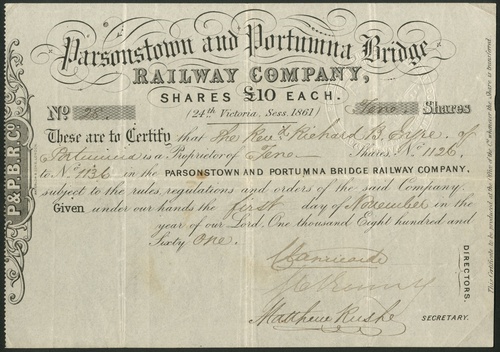 Parsonstown and Portumna Bridge
RAILWAY COMPANY,
SHARES £10 EACH.
(24th Victoria, Sess. 1861)
No 28 Shares
These are to Certify that The Revd. Richard B. of
Portumna is a Proprietor of Shares No 1126
to No 1136 in the PARSONSTOWN AND PORTUMNA BRIDGE RAILWAY COMPANY,
subject to the rules, regulations and orders of the said Company.
Given under our hands the first day of November in the
year of our Lord, One thousand Eight hundred and
Sixty One.
DIRECTORS.
Matthew SECRETARY.
P&P.B.R.Co.
This Certificate to be at the Office of the Co. whenever the Share is transferred.